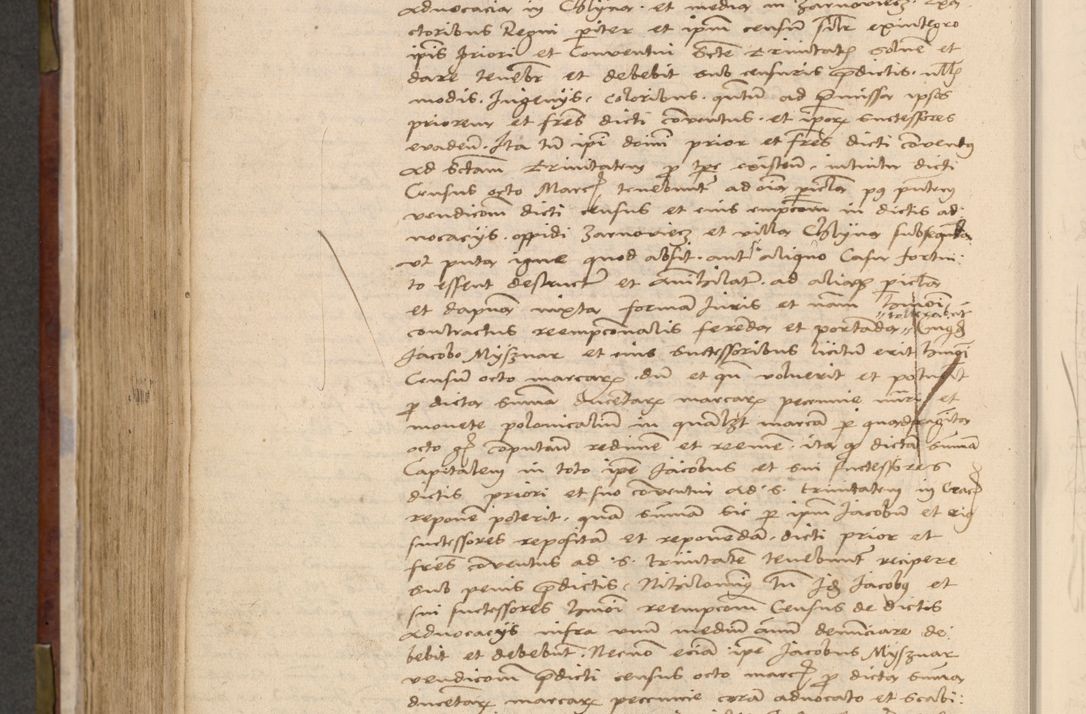 advocacia in Chlyna et media in Zarnoviecz exa
ctoribus Regni pariter et ipm censum siltr exintegro
ipis Priori et Conventui Scte Trinitatis solvere et
dare tenebit et debebit sub censuris predictis null
modis. Ingenys, coloribus. qntum ad premissa ipsos
priorem et fres dicti conventus et ipor successores
evadent. Ita tn ipi domi prior et fres dicti conventus
ad Sctam Trinitatem p tpe existen. intuitu dicti
Census octo Marc tenebunt ad oia picla pq pntem
vendicom dicti census et eius empcom in dictis ad
vocacys. oppidi Zarnoviecz et villa Chlyna subsequenda
ut puta igne quod absit. aut aliquo Casu fortui:
to essent destructe et anihilate. ad aliaq picla
et dapna iuxta formam Iuris et nam humoi
contractus reempconalis ferenda et portanda
Jacobo Mysznar et eius successoribus licitum erit humoi
Censum octo marcar. dum et qn voluerit et poterit
p dicta summa ducentar marcar pecunie nuri et
monete polonicalium in qualzt marcam p quadraginta
octo gr computan redimere et reemere. ita q dictam summam
Capitalem in toto ipe Jacobus et sui successores
dictis priori et suo conventui ad S. trinitatem in Crac
reponere poterit. quam summam sic p ipm Jacobum et eius
successores repositam et reponendam. dicti prior et
fres conventus ad S. trinitatem tenebunt recipere
sub penis predictis. Nihilominus tn Idem Jacobus et
sui successores humoi reempcom Census de dictis
advocacys infra unum medium annum denunciare de:
bebit et debebunt. Necno ecia ipe Jacobus Mysznar
vendicom predicti census octo marc p dicta summa
ducentar marcar pecunie coram advocato et scabi: